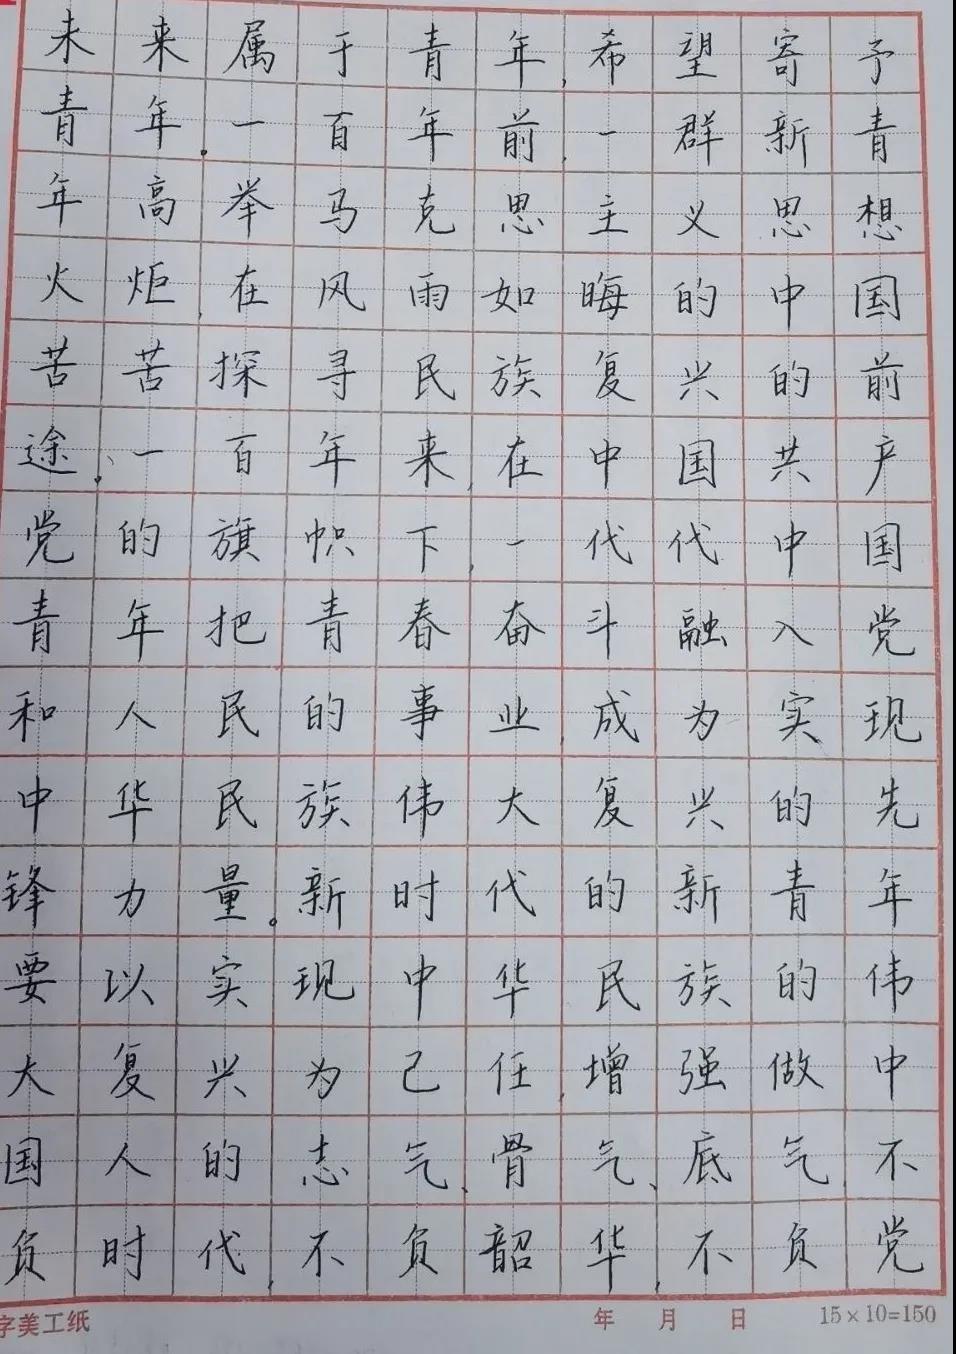 未来属于青年,希望寄予
青年.一百年前,一群新青
年高举马克思主义思想
火炬,在风雨如晦的中国
苦苦探寻民族复兴的前
途.一百年来,在中国共产
党的旗帜下,一代代中国
青年把青春奋斗融入党
和人民的事业,成为实现
中华民族伟大复兴的先
锋力量。新时代的新青年
要以实现中华民族的伟
大复兴为己任,增强做中
国人的志气、骨气、底气,不
负时代,不负韶华,不负党
字美工纸 年 月 日 15×10=150